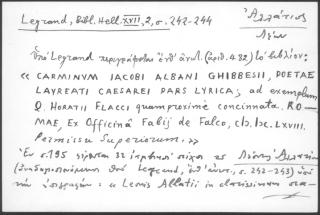 Legrand, Bibl. Hell. XVII, 2, σ. 242-244
Ἀλλάτιος
Λέων
Ὑπὸ Legrand περιγράφεται ἐνθ' ἀνωτ. (ἀριθ. 482) τὸ βιβλίον:
« CARMINUM IACOBI ALBANI GHIBBESII, POETAE
LAUREATI CAESAREI PARS LYRICA; ad exemplum
Q. HORATII FLACCI quamproximè concinnata. RO-
MAE, Ex Officinâ Fabij de Falco, cIɔ. Iɔc. LXVIII.
Permissu Superiorum. »
Ἐν σ. 195 στίχοι Λέοντος Ἀλλατίου
Legrand, ἐνθ' ἀνωτ., σ. 242-243) ὑπὸ
τὴν ἐπιγραφήν: « Leonis Allatii in clarissimum